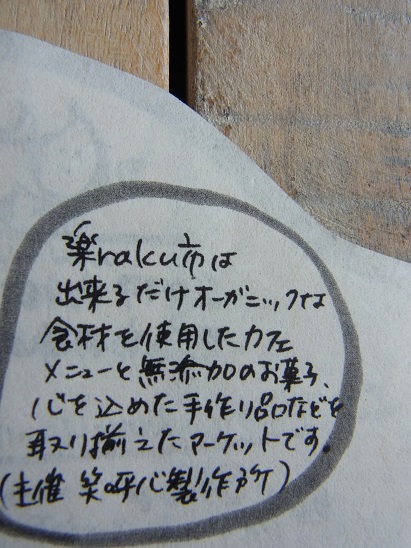 楽raku市は
出来るだけオーガニックな
食材を使用したカフェ
メニューと無添加のお菓子、
心を込めた手作り品などを
取り揃えたマーケットです。
(主催 笑呼心製作所)